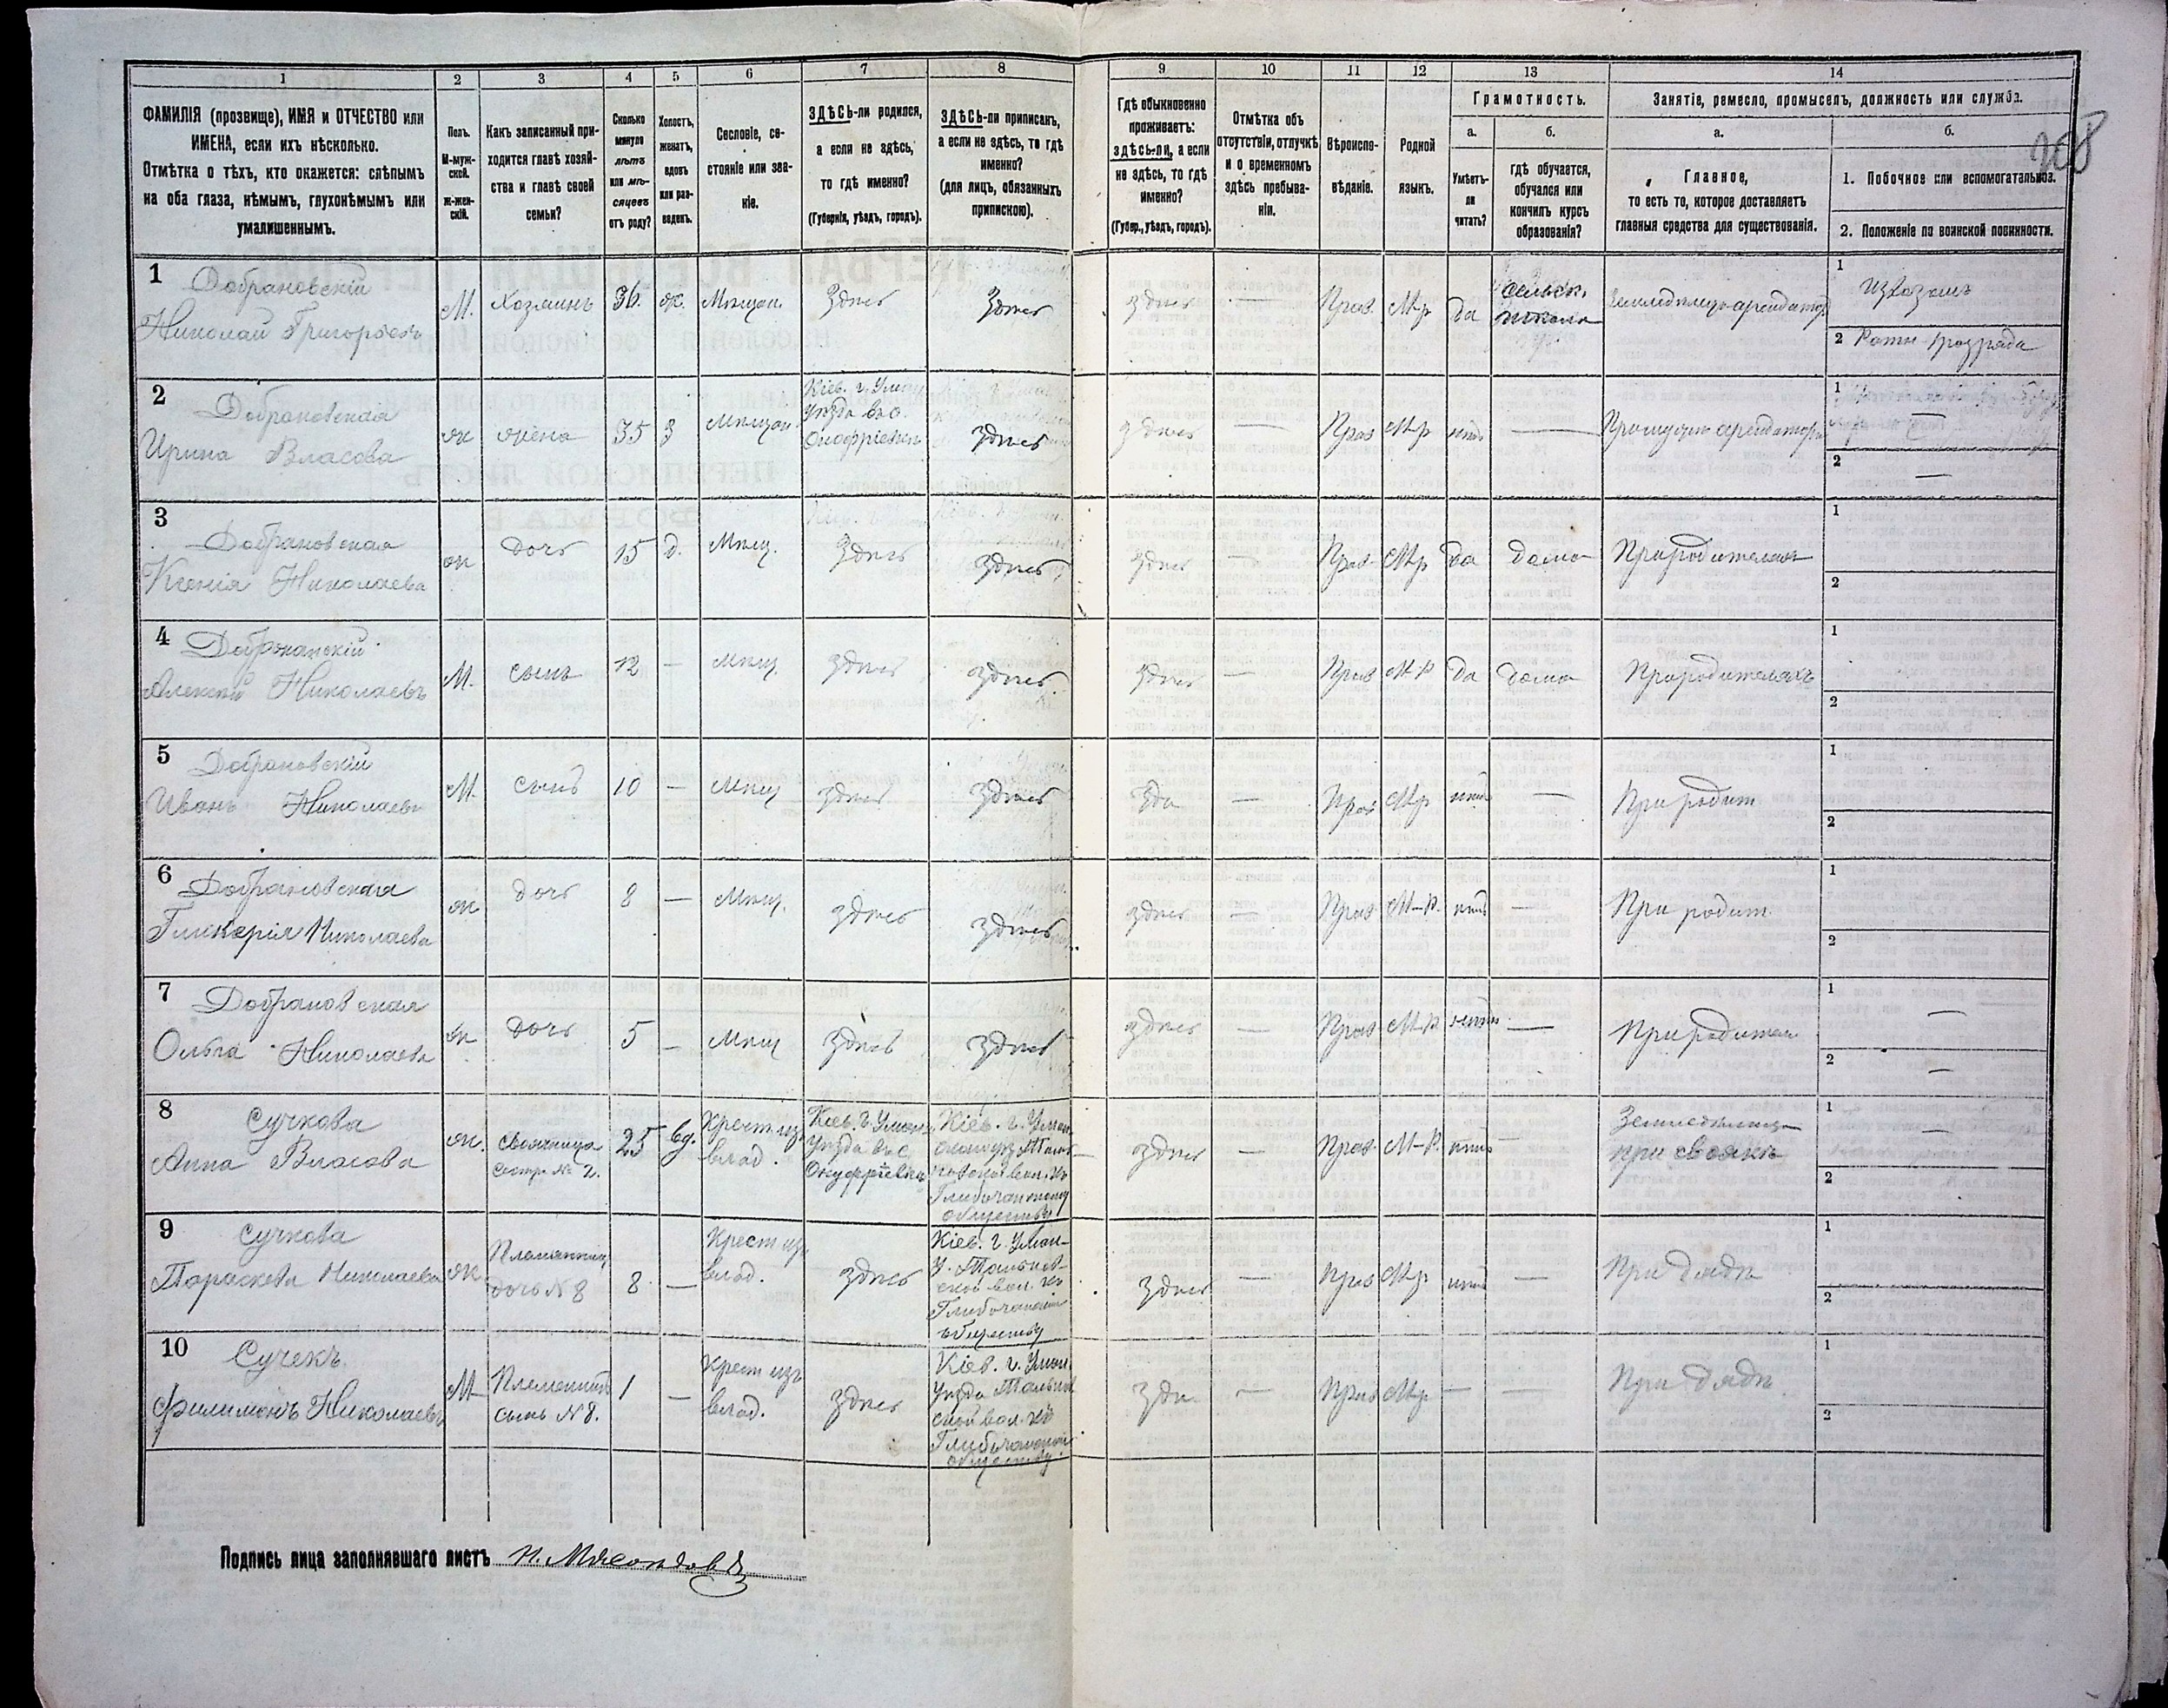 1 2 3 4 5 6 7 8 9 10 11 12 13 14
ФАМИЛІЯ (прозвище), ИМЯ и ОТЧЕСТВО или
ИМЕНА, если ихъ нѣсколько.
Отмѣтка о тѣхъ, кто окажется: слѣпымъ
на оба глаза, нѣмымъ, глухонѣмымъ или
умалишеннымъ.
Полъ.
М-муж-
ской.
ж-жен-
скій.
Какъ записанный при-
ходится главѣ хозяй-
ства и главѣ своей
семьи?
Сколько
минуло
лѣтъ
или мѣ-
сяцевъ
отъ роду?
Холостъ,
женатъ,
вдовъ
или раз-
веденъ.
Сословіе, со-
стояніе или зва-
ніе.
ЗДѢСЬ-ли родился,
а если не здѣсь,
то гдѣ именно?
(Губернія, уѣздъ, городъ).
ЗДѢСЬ-ли приписанъ,
а если не здѣсь, то гдѣ
именно?
(для лицъ, обязанныхъ
припискою).
Гдѣ обыкновенно
проживаетъ:
здѣсь-ли, а если
не здѣсь, то гдѣ
именно?
(Губер., уѣздъ, городъ).
Отмѣтка объ
отсутствіи, отлучкѣ
и о временномъ
здѣсь пребыва-
ніи.
Вѣроиспо-
вѣданіе.
Родной
языкъ.
Грамотность.
а. б.
Умѣетъ-
ли
читать?
гдѣ обучается,
обучался или
кончилъ курсъ
образованія?
Занятіе, ремесло, промыселъ, должность или служба.
а. б.
Главное,
то есть то, которое доставляетъ
главныя средства для существованія.
1. Побочное или вспомогательное.
2. Положеніе по воинской повинности.
268
1 Добрановскій
Николай Григорьевъ
М. Хозяинъ 36. ж. Мѣщан. Здѣсь Здѣсь здѣсь — Прав. М-р да
сельск.
школа
Земледѣлецъ-арендаторъ
1 Извозомъ
2 Ратн. 1 разряда
2 Добрановская
Ирина Власова
ж жена 35 з Мѣщан.
Кіев. г. Уман
уѣзда въ с.
Онофріевкѣ
здѣсь здѣсь — Прав М-р нѣтъ —
1 —
2 —
3 Добрановская
Ксенія Николаева
ж дочь 15 д. Мѣщ. Здѣсь Здѣсь здѣсь — Прав М-р да дома При родителяхъ
1
2
4 Добрановскій
Алексѣй Николаевъ
М. сынъ 12 — мѣщ. здѣсь здѣсь здѣсь — Прав М-р да дома При родителяхъ
1
2
5 Добрановскій
Иванъ Николаевъ
М. сынъ 10 — мѣщ здѣсь здѣсь здѣ — Прав М-р нѣтъ — При родит
1
2
6 Добрановская
Гликерія Николаева
ж дочь 8 — Мѣщ. здѣсь здѣсь здѣсь — Прав М-р. нѣтъ — При родит.
1
2
7 Добрановская
Ольга Николаева
ж дочь 5 — Мѣщ здѣсь здѣсь здѣсь — Прав М-р нѣтъ — При родител
1 —
2 —
8 Сучкова
Анна Власова
ж. свояченица
сестра № 2.
25 вд.
Крест. изъ
влад.
Кіев. г. Уман.
уѣзда въ с.
Онуфріевкѣ
Кіев. г. Уман.
Глибочанскому
обществу
здѣсь — Прав. М-р. нѣтъ
Земледѣлица
при своякѣ
1 —
2
9 Сучкова
Параскева Николаева
ж Племянница
дочь № 8
8 —
Крест изъ
влад.
здѣсь
Кіев. г. Уман-
у. Тальнов-
ской вол. къ
Глибочанском
обществу
здѣсь — Прав М-р нѣтъ — При дядѣ
1
2
10 Сучекъ
Филимонъ Николаевъ
М Племянникъ
сынъ № 8.
1 —
Крест изъ
влад.
здѣсь
Кіев. г. Уман.
уѣзда Тальнов
ской вол. къ
Глибочанском
обществу.
здѣ. — Прав М-р — — При дядѣ
1
2
Подпись лица заполнявшаго листъ Н. Мясоѣдовъ